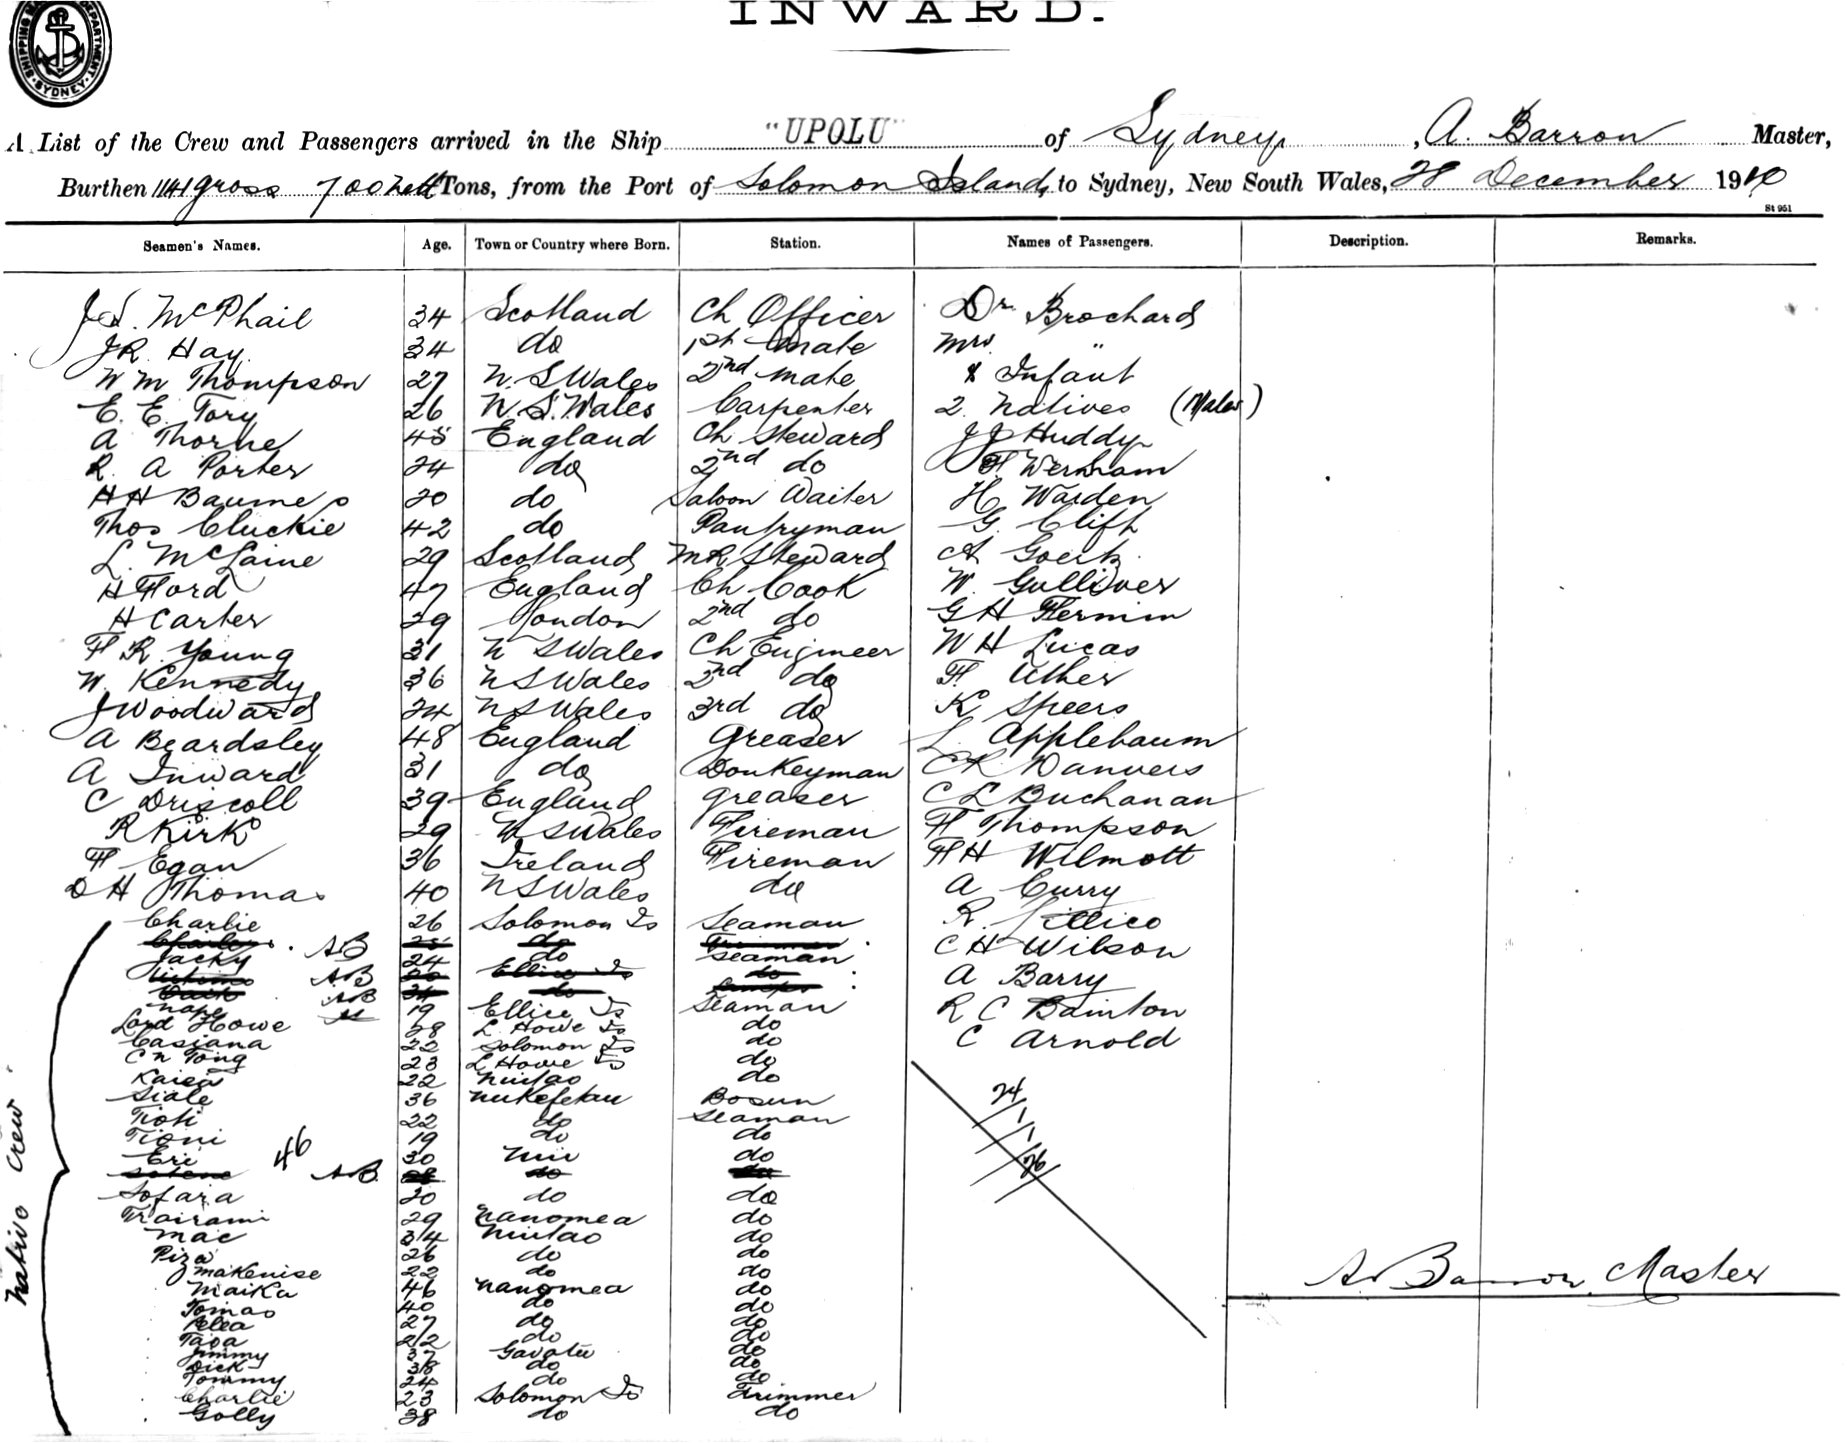 INWARD.
SHIPPING MA DEPARTMENT SYDNEY
A List of the Crew and Passengers arrived in the Ship "UPOLU" of Sydney, A. Barron Master,
Burthen 1141 gross 700 nett Tons, from the Port of Solomon Islands to Sydney, New South Wales, 28 December 1910
St 951
Seamen's Names. Age. Town or Country where Born. Station. Names of Passengers. Description. Remarks.
J S. McPhail 34 Scotland Ch Officer Dr Brochard
J R. Hay 34 do 1st Mate Mrs "
W M Thompson 27 N. S Wales 2nd Mate & Infant
E. E. Tory 26 N. S. Wales Carpenter 2 Natives (Males)
A Thorne 45 England Ch Steward J J Huddy
R. A Porter 24 do 2nd do F. Wernham
H H Baumes 20 do Saloon Waiter H Warden
Thos Cluckie 42 do Pantryman G. Clift
L. McLaine 29 Scotland M R Steward A Goertz
H Ford 47 England Ch Cook W. Gulliver
H Carter 29 London 2nd do G H Fermin
F R Young 31 N S Wales Ch Engineer W H Lucas
W. Kennedy 36 N S Wales 2nd do F. Uther
J Woodward 24 N S Wales 3rd do K Speers
A Beardsley 48 England Greaser L. Applebaum
A Inward 31 do Donkeyman C R Danvers
C Driscoll 39 England Greaser C L Buchanan
R Kirk 29 N S Wales Fireman F Thompson
F Egan 36 Ireland Fireman F H Wilmott
D H Thomas 40 N S Wales do A Curry
Charlie 26 Solomon Is Seaman R. Gillico
A B do C H Wilson
Jacky 24 do Seaman
A B Ellice Is do A Barry
A B do
Nape 19 Ellice Is Seaman R C Bainton
Lord Howe 28 L. Howe Is do
Casiana 22 Solomon Is do C Arnold
C N Tong 23 L Howe Is do
Kaiea 22 Niutao do
Siale 36 Nukefetau Bosun 24
Tioti 22 do Seaman 1
Tioni 19 do do 1
Eri 46 30 Niu do 26
A B 28 do do
Sofara 20 do do
Trairami 29 Nanomea do
Mac 34 Niutao do
Piza 26 do do
Makenise 22 do do
Maika 46 Nanomea do
Tomas 40 do do
Pelea 27 do do
Taoa 22 do do
Jimmy 37 Gavatu do
Dick 38 do do
Tommy 24 do do
Charlie 23 Solomon Is Trimmer
Golly 38 do do
Native Crew
A. Barron Master